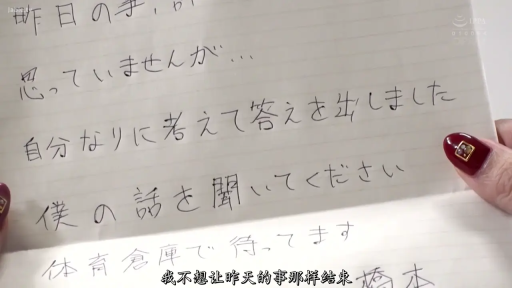 昨日の事,
思っていませんが…
自分なりに考えて答えを出しました
僕の話を聞いてください
体育倉庫で待ってます
我不想让昨天的事那样结束
橋本